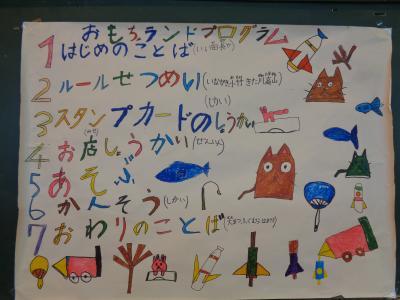 おもちランドプログラム
1 はじめのことば
2 ルールせつめい
(しかい)
3 スタンプカードのしょうかい
4 お店しょうかい(ぜんいん)
5 あそぶ
6 かんそう(しかい)
7 おわりのことば